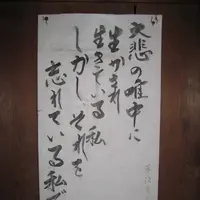 大悲の唯中に
生かされ
生きている私
しかしそれを
忘れている私